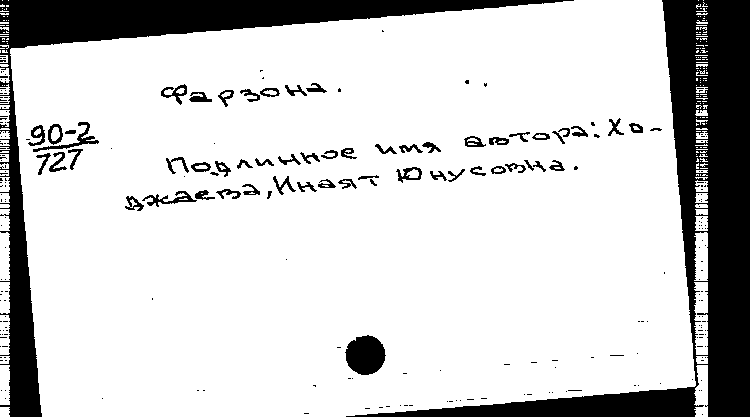 Фарзона.
90-2
727
Подлинное имя автора: Хо-
джаева, Инаят Юнусовна.